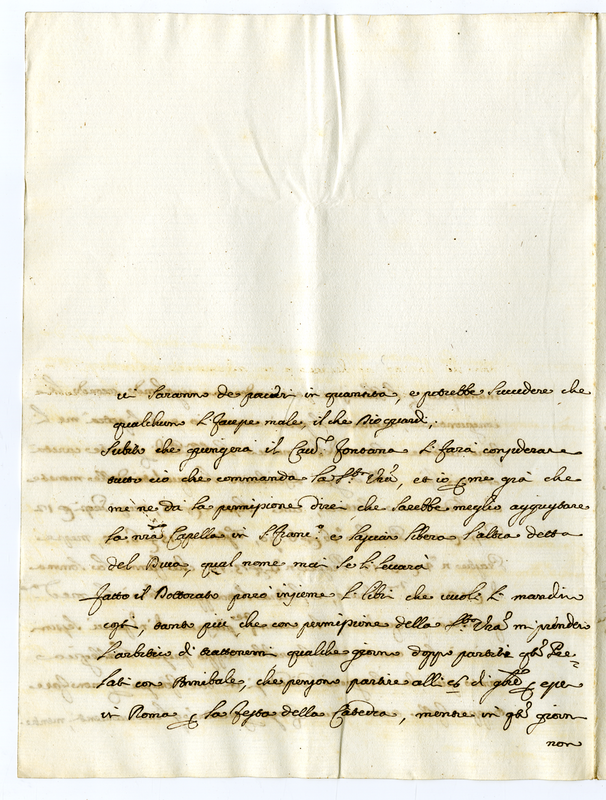 vi saranno de pacieri in quantità, e potrebbe succedere che
qualchun si facesse male, il che Dio guardi,
Subito che giungerà il Cav.r Fontana si farà considerare
tutto ciò che commanda la S.ria V.ra, et io p me già che
me ne dà la permissione direi che sarebbe meglio aggiustare
la n̄ra Capella in S. Franc.o e lasciar libera l'altra detta
del Duca, qual nome mai se li leverà
Fatto il Dottorato porrò insieme li libri che vuole li mandi in
cotesta tanto più che con permissione della S.ria V.ra mi prenderò
l'arbitrio di trattenermi qualche giorno doppo partiti q.ti Pre=
lati con Annibale, che pensono partire alli di q.sto p esser
in Roma p la festa della Catedra, mentre in q.ti giorni
non